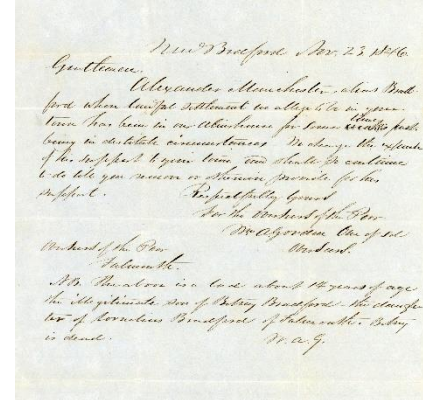 New Bedford Nov. 23, 1846.
Gentlemen.
Alexander Manchester alias Brad
ford whose lawful settlement we allege to be in your
town has been in our Almshouse for some time past
being in destitute circumstances We charge the expense
of his support to your town and shall so continue
to do till you remove or otherwise provide for his
support.
Respectfully Yours
For the Overseers of the Poor
Wm A Gordon One of sd
Overseers.
Overseers of the Poor
Falmouth.
NB. The above is a lad about 14 years of age
the illegitimate son of Betsey Bradford - the daugh
ter of Cornelius Bradford of Falmouth - Betsey
is dead. W. A. G.